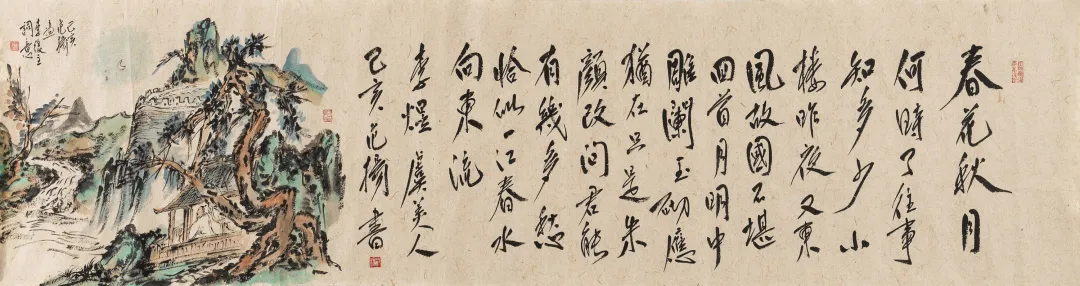 春花秋月
何時了往事
知多少小
樓昨夜又東
風故國不堪
回首月明中
雕闌玉砌應
猶在只是朱
顏改問君能
有幾多愁
恰似一江春水
向東流
李煜虞美人
己亥范揚書
己亥
范揚
畫
李後主
詞意